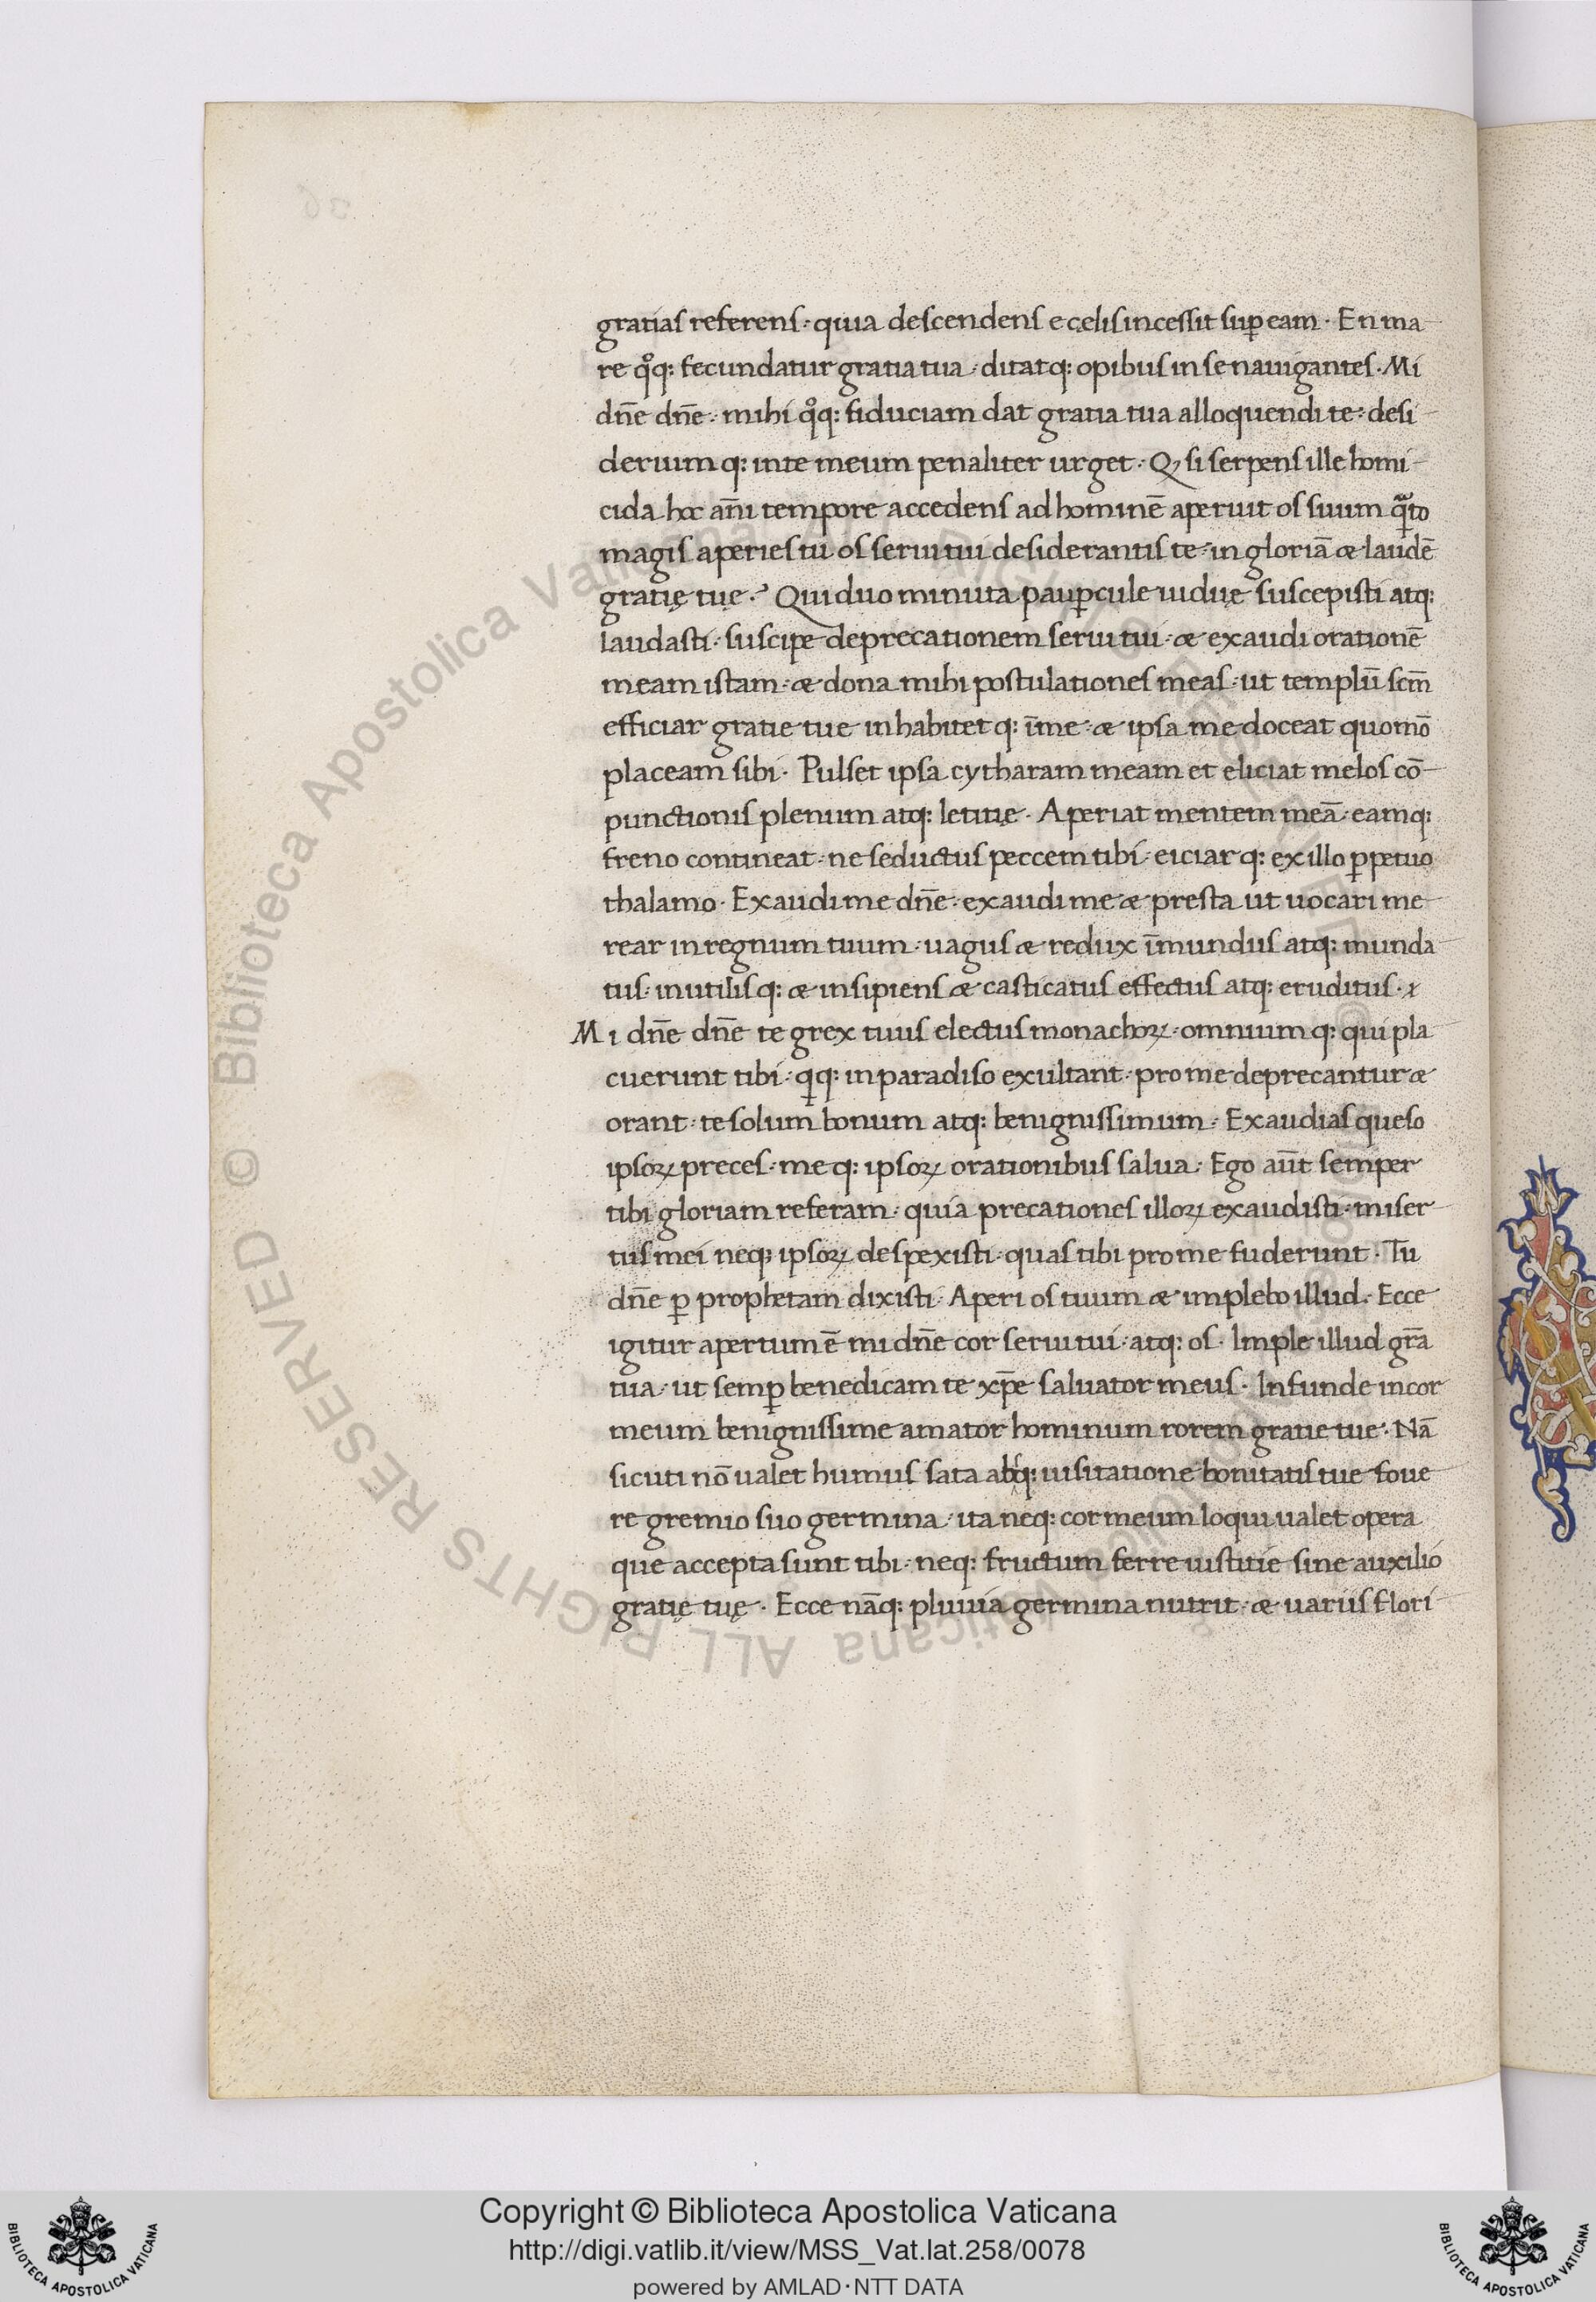 gratias referens · quia descendens e cęlis incessit suꝑ eam · En ma
re qͦq: fecundatur gratia tua · ditatq: opibus in se nauigantes · Mi
dn̄e dn̄e · mihi qͦq: fiduciam dat gratia tua alloquendi te · desi
derium q: in te meum penaliter urget · Qꝫ si serpens ille homi
cida hoc an̄i tempore accedens ad hominē aperuit os suum to
magis aperies tu os serui tui desiderantis te · in gloriā & laudē
gratię tuę · Qui duo minuta pauꝑcule uiduę suscepisti atq:
laudasti · suscipe deprecationem serui tui · & exaudi orationē
meam istam · & dona mihi postulationes meas · ut templū scm̄
efficiar gratie tue inhabitet q: ī me · & ipsa me doceat quomō
placeam sibi · Pulset ipsa cytharam meam et eliciat melos cō
punctionis plenum atq: letitię · Aperiat mentem meā · eamq:
freno contineat · ne seductus peccem tibi · eiciar q: ex illo ꝑpetuo
thalamo · Exaudi me dn̄e · exaudi me & presta ut uocari me
rear in regnum tuum · uagus & redux īmundus atq: munda
tus · inutilis q: & insipiens & casticatus effectus atq: eruditus ·
Mi dn̄e dn̄e te grex tuus electus monachoꝝ · omnium q: qui pla
cuerunt tibi · q: in paradiso exultant · pro me deprecantur &
orant · te solum bonum atq: benignissimum · Exaudias queso
ipsoꝝ preces · me q: ipsoꝝ orationibus salua · Ego aūt semper
tibi gloriam referam · quia precationes illoꝝ exaudisti · miser
tus mei neqꝫ ipsoꝝ despexisti · quas tibi pro me fuderunt · Tu
dn̄e ꝑ prophetam dixisti · Aperi os tuum & implebo illud · Ecce
igitur apertum ē mi dn̄e cor serui tui · atq: os · Imple illud gr̄a
tua · ut semꝑ benedicam te xp̄e saluator meus · Infunde in cor
meum benignissime amator hominum rorem gratie tue · Nā
sicuti nō ualet humus sata absq: uisitatione bonitatis tue foue
re gremio suo germina · ita neq: cor meum loqui ualet opera
que accepta sunt tibi · neq: fructum ferre iustitie sine auxilio
gratię tuę · Ecce nāq: pluuia germina nutrit · & uariis flori
Copyright © Biblioteca Apostolica Vaticana
http://digi.vatlib.it/view/MSS_Vat.lat.258/0078
powered by AMLAD·NTT DATA
© Biblioteca Apostolica Vaticana ALL RIGHTS RESERVED
BIBLIOTECA APOSTOLICA VATICANA
BIBLIOTECA APOSTOLICA VATICANA